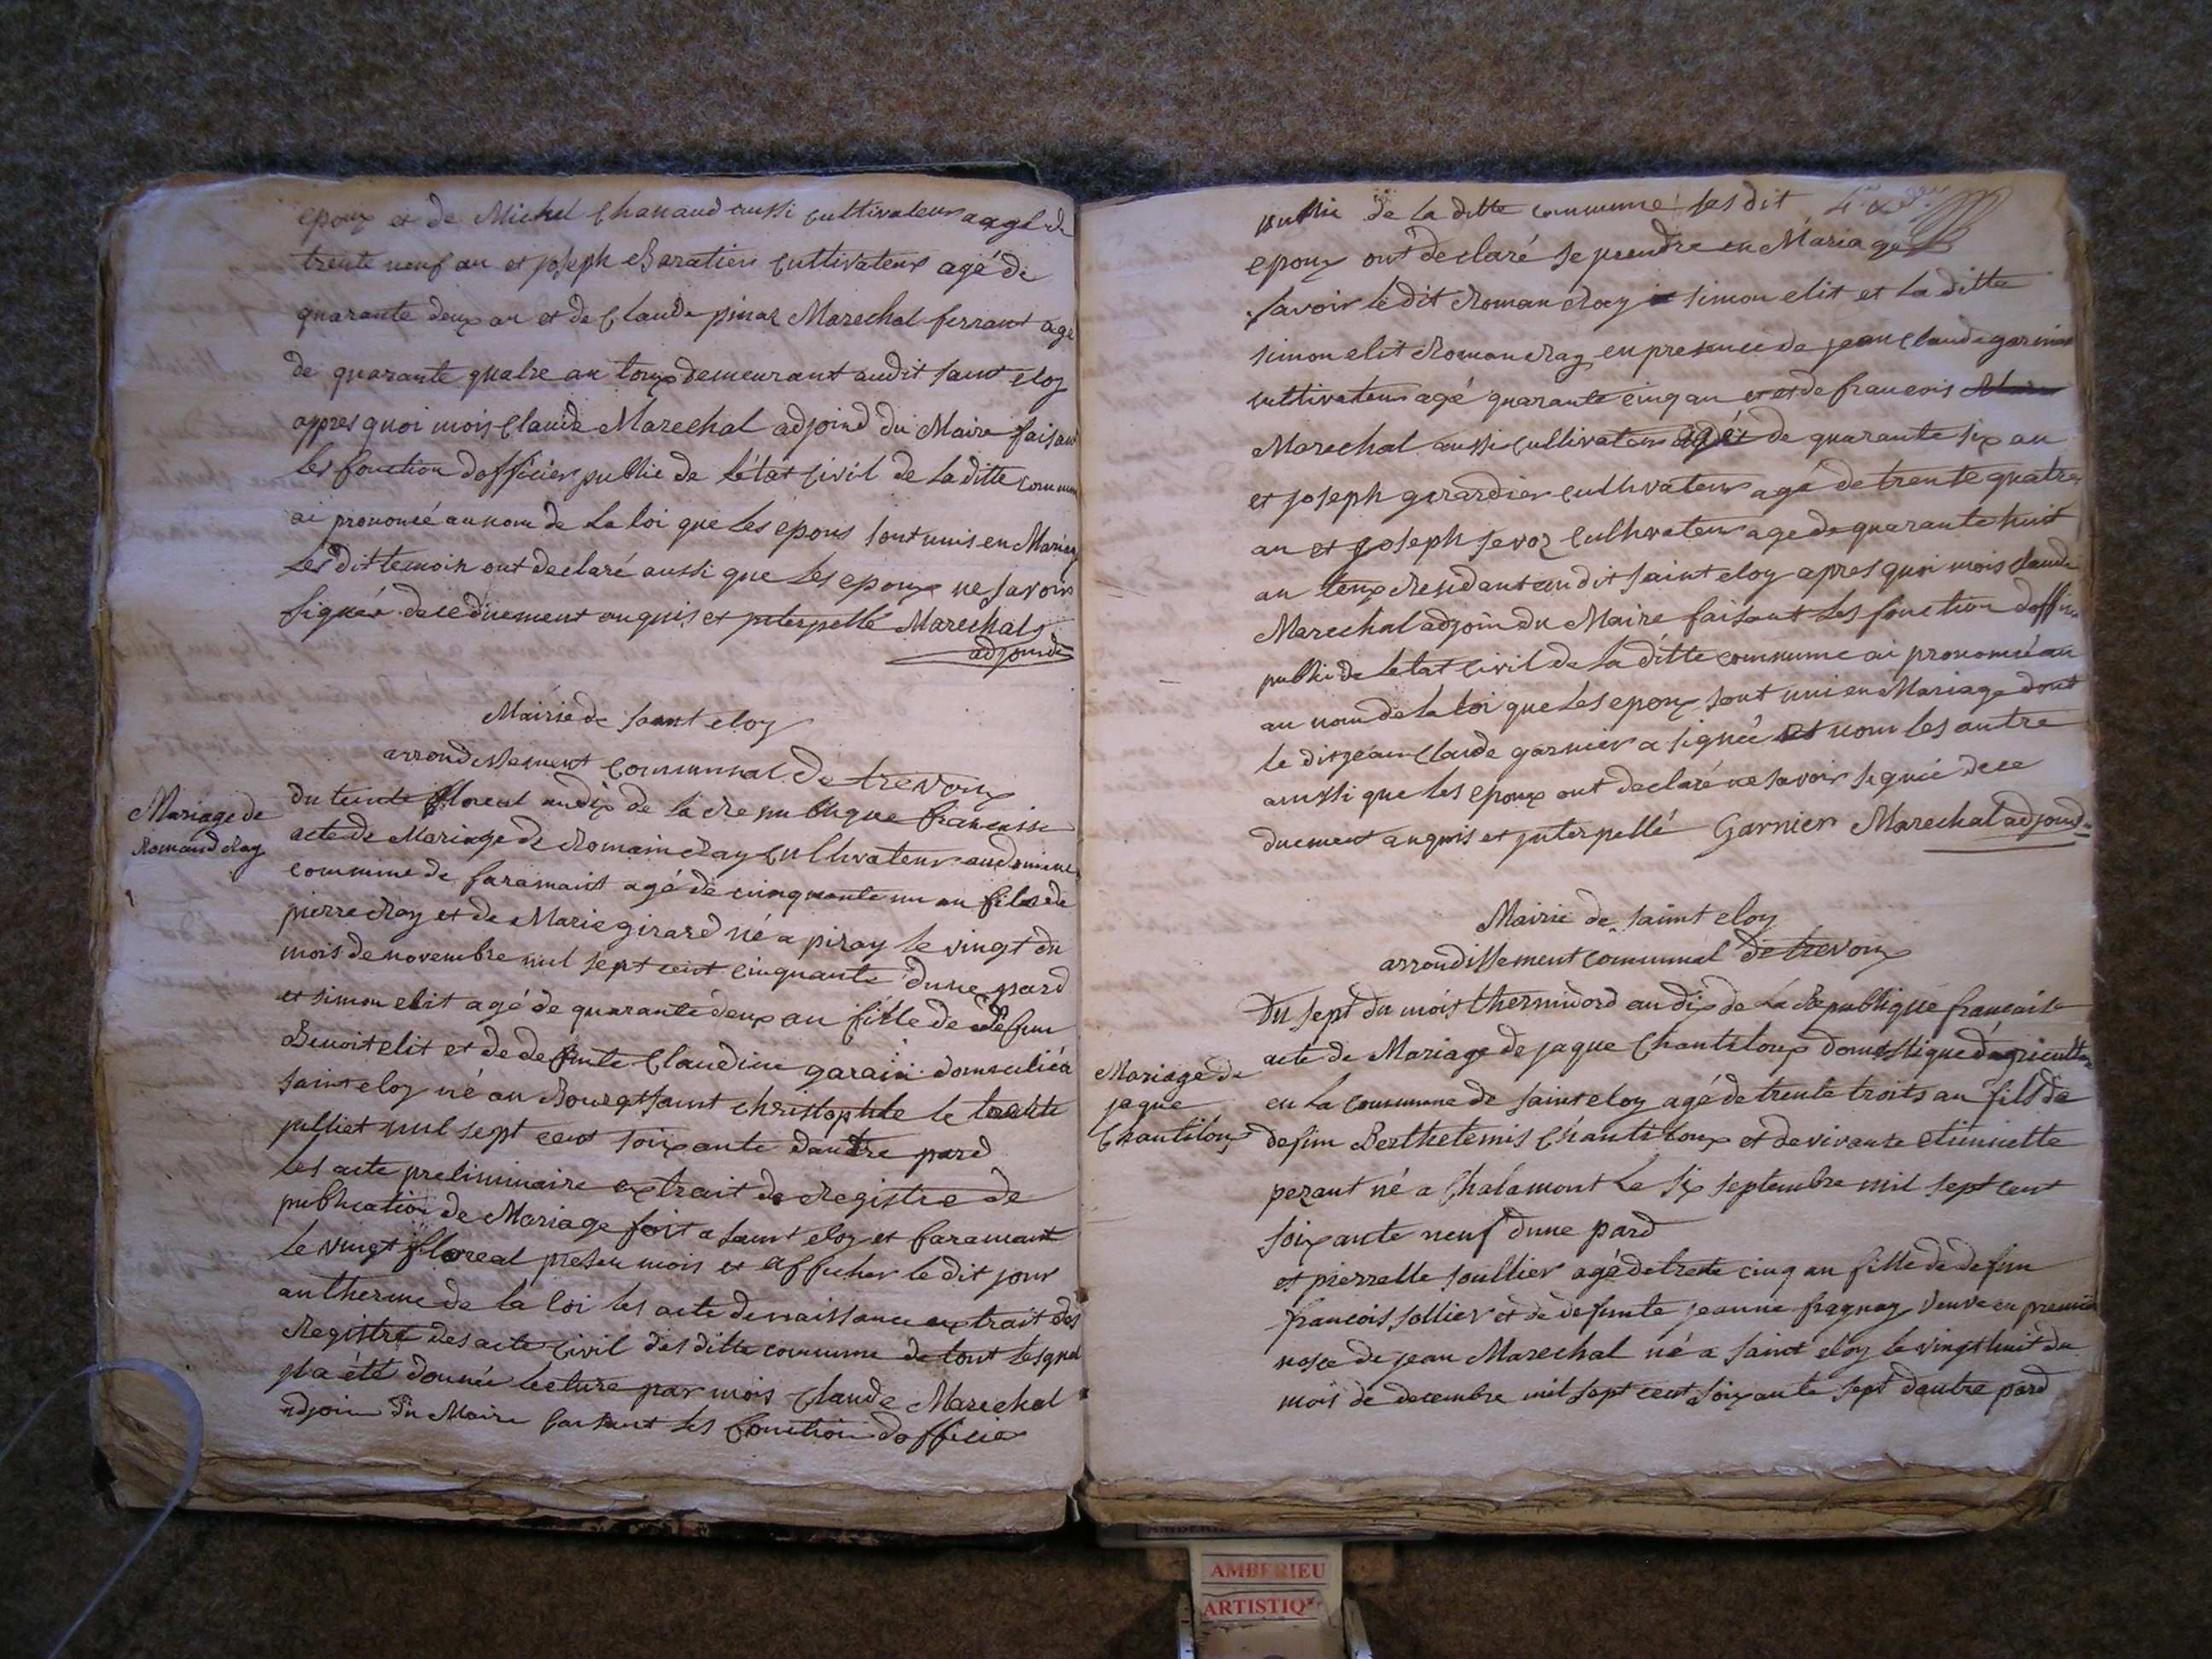 epoux et de Michel Chanaud aussi cultivateur aagé de
trente neuf an et joseph Baratien cultivateur agé de
quarante deux an et de Claude pinaz Marechal ferrant agé
de quarante quatre an tous demeurant audit saint eloy
appres quoi mois Claude Marechal adjoind du Maire faisant
les fonction dofficier public de létat civil de la ditte commune
ai prononcé au nom de la loi que les epous sont unis en Mariage
les dit temoin ont declaré aussi que les epoux ne savoir
signée de ce duement anquis et interpellé Marechal
adjoinde
Mairie de saint eloy
arrondissement communal de trevoux
Mariage de
Romand Ray
du trente floreal an dix de la Republique francaisse
acte de Mariage de Romain Ray cultivateur
commune de faramant agé de cinquante un an fils de
pierre Ray et de Marie girard né a pizay le vingt du
mois de novembre mil sept cent cinquante dune pard
et simon elit agé de quarante deux an fille de defun
Benoit elit et de defunte Claudine garain domicilié a
saint eloy né au Bourg saint christophle le trente
julliet mil sept cent soixante dautre pard
les acte preliminaire extrait de Registre de
publication de Mariage fait a saint eloy et faramant
le vingt floreal presen mois et afficher le dit jour
au therme de la loi les acte de naissance extrait des
Registre des acte civil des ditte commune de tout lesquel
yl a été donnée lecture par mois Claude Marechal
adjoin du Maire faisant les fonction dofficier
public de la ditte commune les dit
epoux ont declaré se prendre en Mariage
savoir le dit Roman Ray simon elit et la ditte
simon elit Roman Ray en presence de jean Claude garnier
cultivateur agé quarante cinq an et de francois
Marechal aussi cultivateur agé de quarante six an
et joseph girardier cultivateur agé de trente quatre
an et joseph sevoz cultivateur age de quarante huit
an tous Residant audit saint eloy apres quoi mois Claude
Marechal adjoin du Maire faisant les fonction doffici
public de letat civil de la ditte commune ai prononcé au
au nom de la loi que les epoux sont uni en Mariage dont
le dit jean Claude garnier a signée et nom les autre
aussi que les epoux ont declaré ne savoir signée de ce
duement anquis et interpellé Garnier Marechal adjoind
Mairie de saint eloy
arrondissement communal de trevoux
Mariage de
jaque
Chantiloup
Du sept du mois thermidord an dix de la Republique francaise
acte de Mariage de jaque Chantiloup domestique dagriculteur
en la commune de saint eloy agé de trente troits an fils de
defun Berthelemis Chantiloup et de vivante etiennette
pezant né a Chalamont le six septembre mil sept cent
soixante neuf dune pard
et pierrette soullier agé de trente cinq an fille de defun
francois sollier et de defunte jeanne fragnay veuve en premie
nosce de jean Marechal né a saint eloy le vingt huit du
mois de decembre mil sept cent soixante sept dautre pard
AMBERIEU
ARTISTIQ